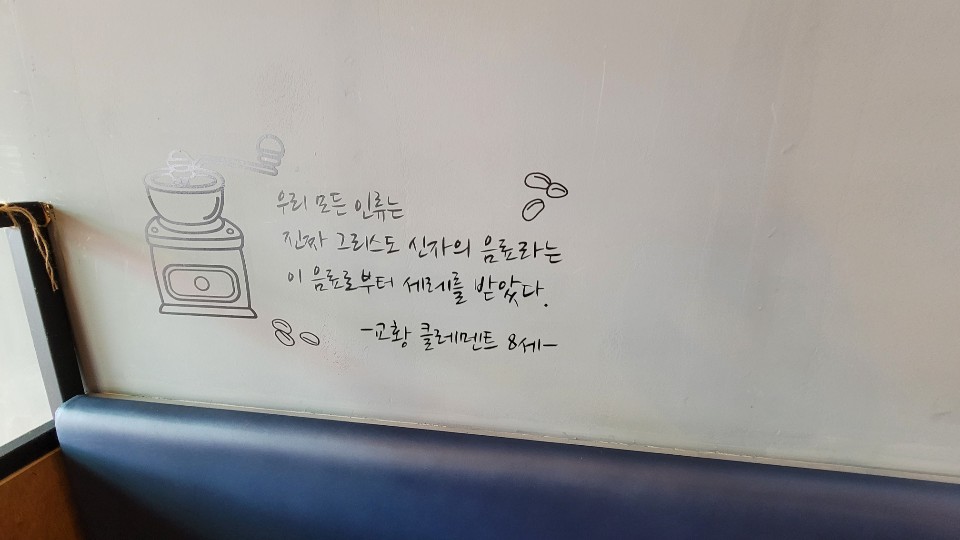 우리 모든 인류는
진짜 그리스도 신자의 음료라는
이 음료로부터 세레를 받았다.
-교황 클레멘트 8세-